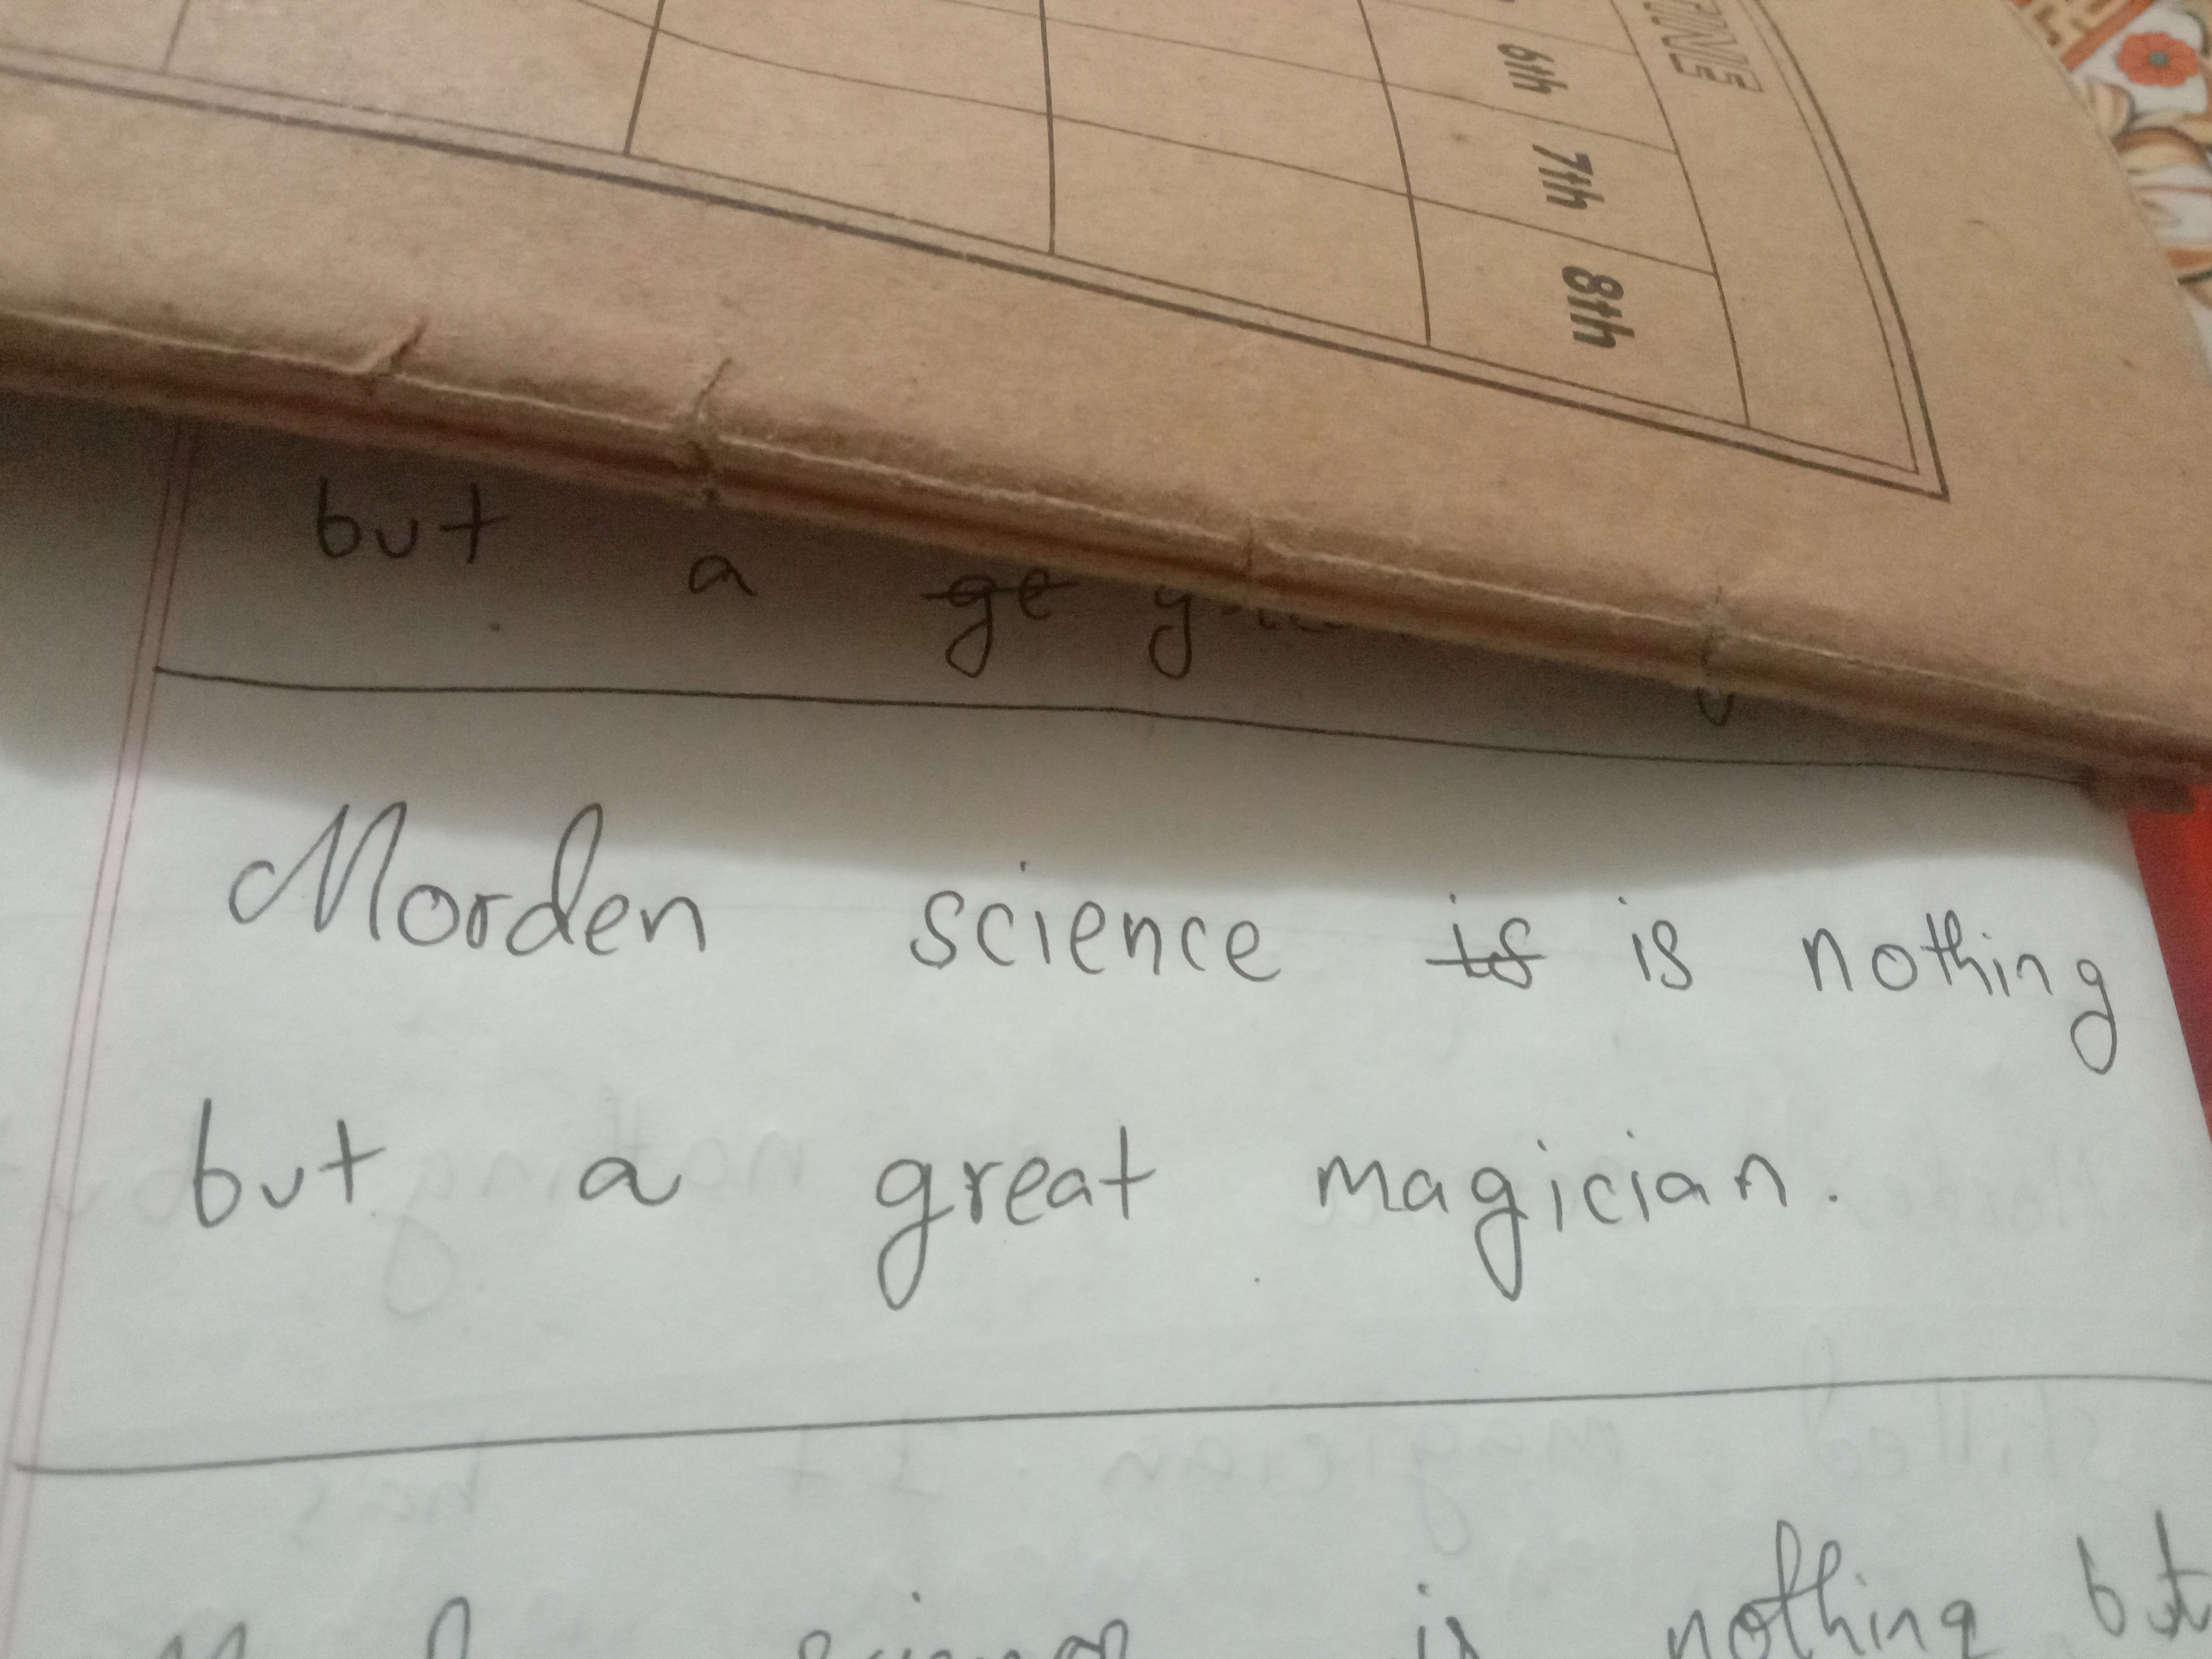 6th
7th
8th
but a ge
Morden science is is nothing
but a great magician.
is nothing but